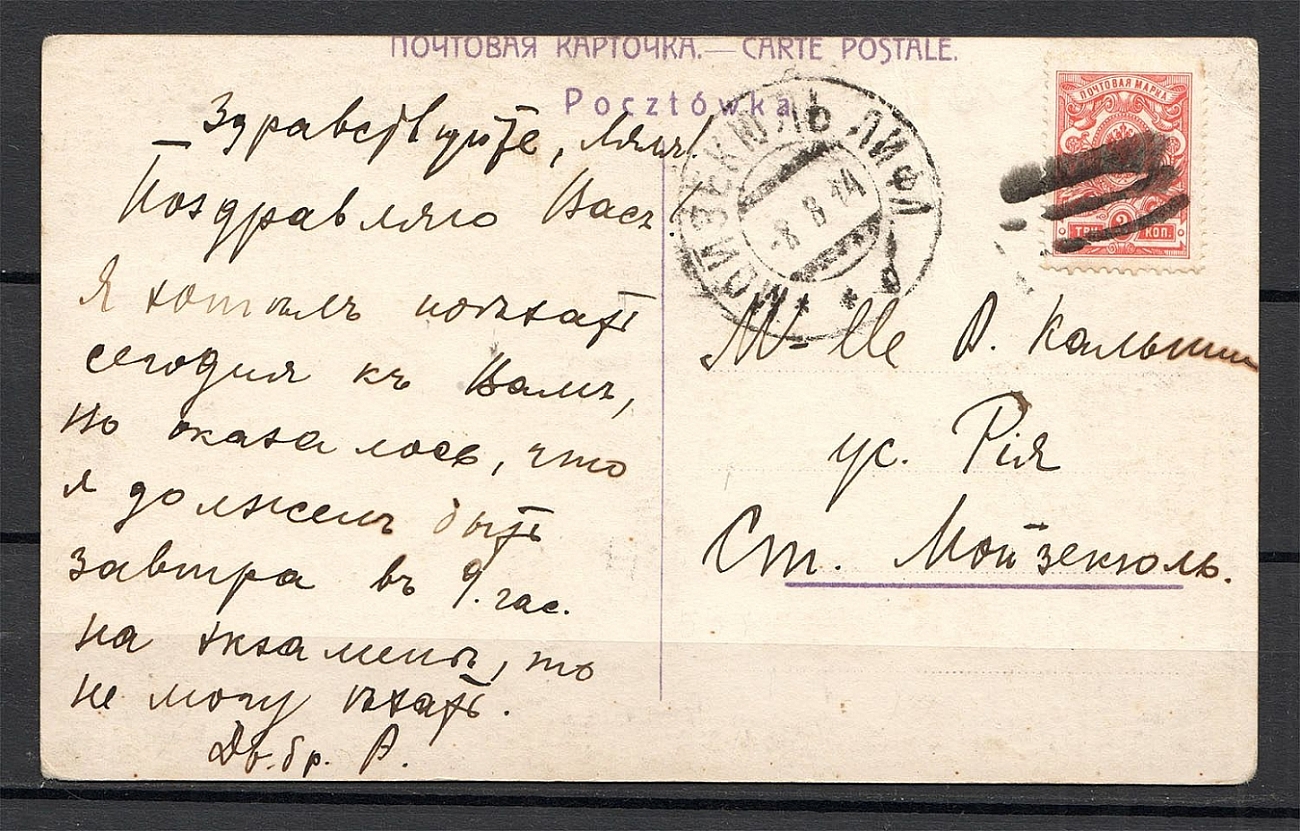 ПОЧТОВАЯ КАРТОЧКА.— CARTE POSTALE.
Pocztówka
Здравствуйте, Ляля!
Поздравляю Васъ!
Я хотѣлъ поѣхать
сегодня къ Вамъ,
но оказалось, что
я долженъ быть
завтра въ 9. час.
на экзаменѣ, то
не могу ѣхать.
Дв. бр. А.
МОЙЗЕКЮЛЬ ЛИФЛ
8 8 14
ПОЧТОВАЯ МАРКА
ТРИ 3 КОП.
M-lle А.
ус. Рія
Ст. Мойзекюль.